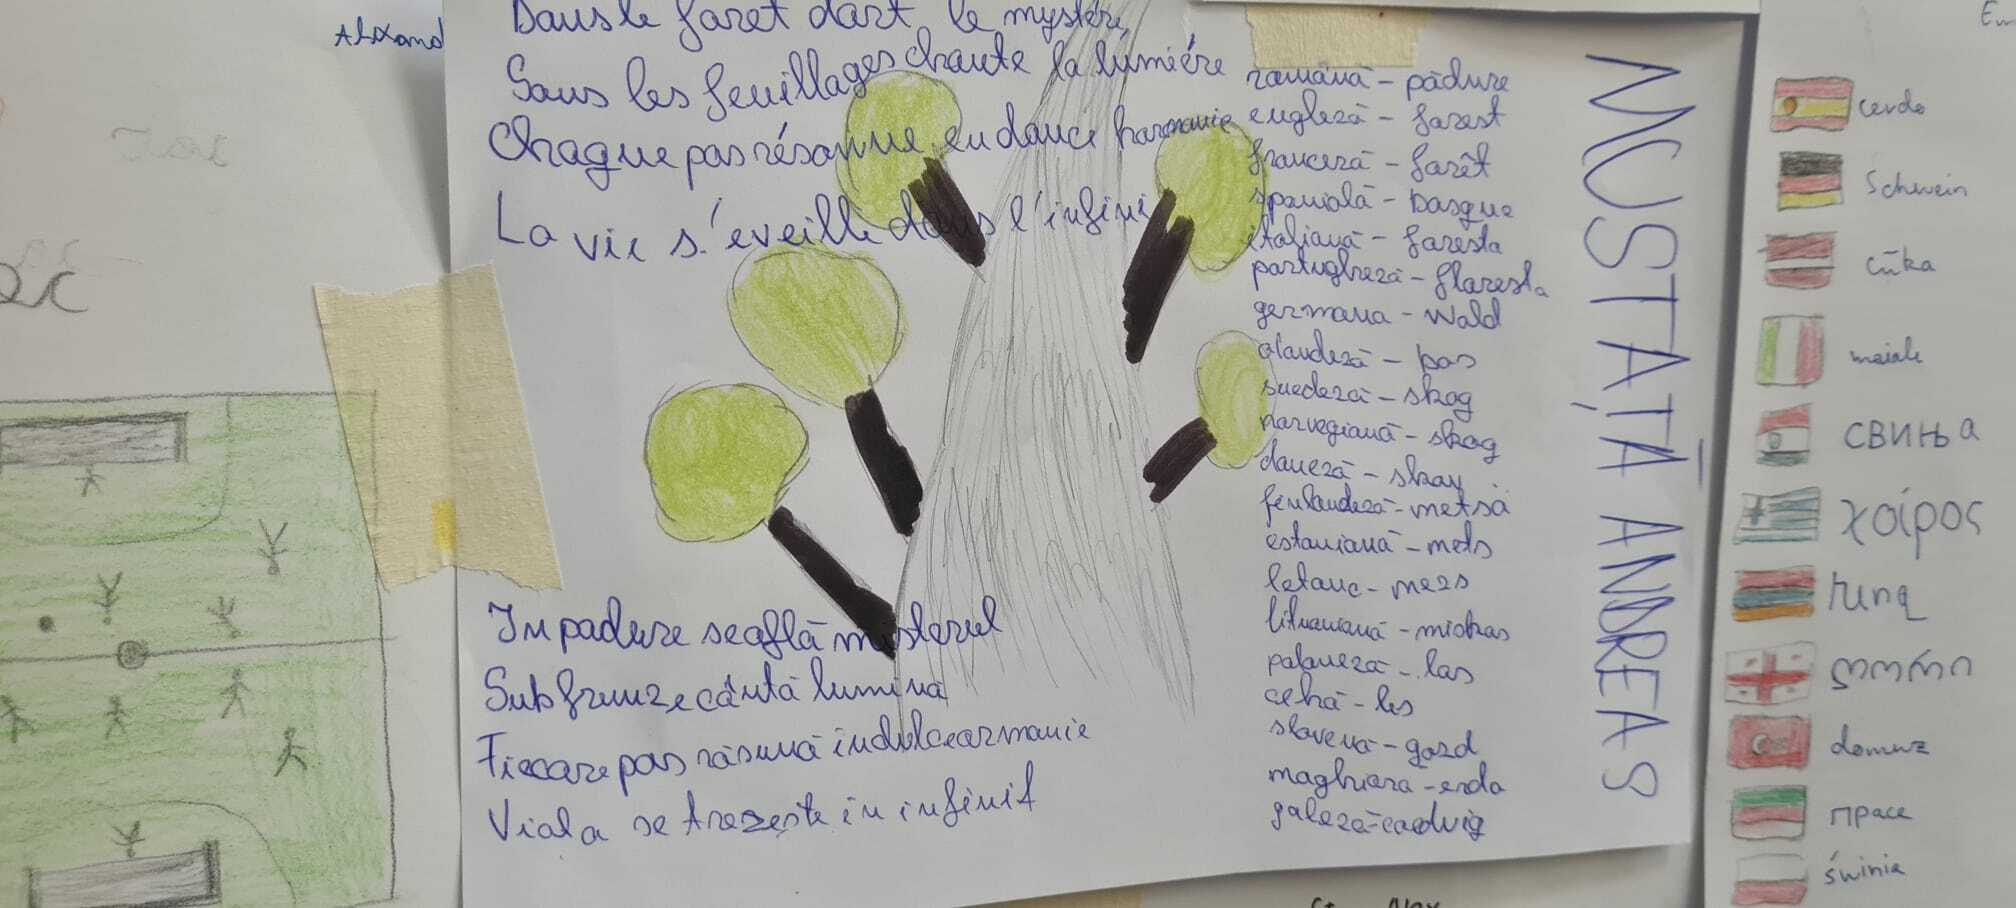 Alexand
Dans le foret dort le mystére,
Sous les feuillages chante la lumiére
Chaque pas résonne en douce harmonie
La vie s'éveille dans l'infini
In padure se află misterul
Sub frunze cântă lumina
Fiecare pas răsună in dulce armonie
Viata se trezește in infinit
română - pădure
engleză - forest
franceză - forêt
spaniolă - bosque
italiană - foresta
portugheză - floresta
germana - Wald
olandeză - bos
suedeză - skog
norvegiană - skog
daneză - skov
finlandeză - metsä
estoniană - mets
letonc - mezs
lituaniană - miskas
poloneză - las
cehă - les
slovenă - gozd
maghiară - erdo
galeză - coedwig
MUSTAȚĂ ANDREA 8
cerdo
Schwein
cūka
maiale
свиња
χοίρος
խոզ
ღორი
domuz
прасе
świnia